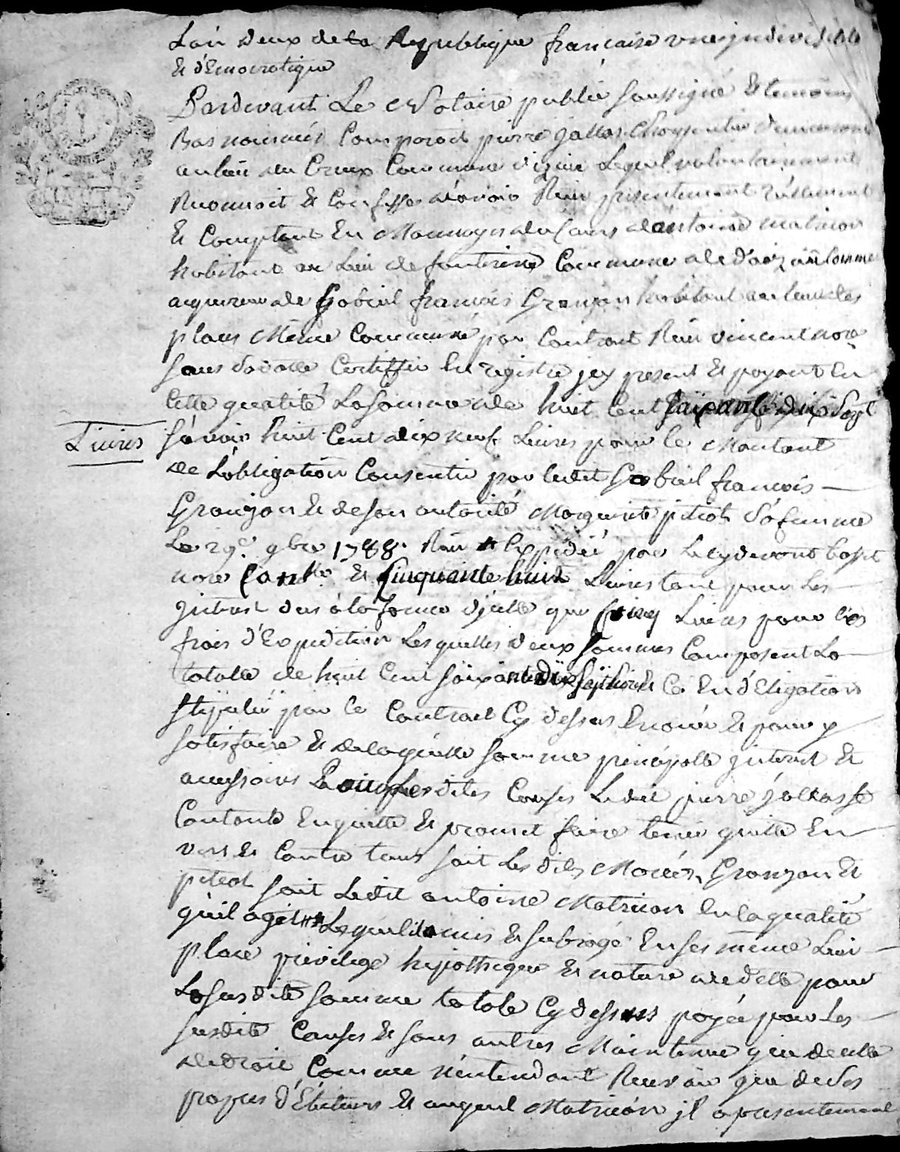 L'an deux de la Republique francaise une jndivisible
Et démocratique
Pardevant Le Notaire public soussigné Et témoins
Bas nommés Comparoit pierre jallas Charpentier demeurant
au lieu du Creux Commune d' Lequel volontairement
Reconnoit Et Confesse d'avoir Reçu présentement réellement
Et Comptant En Monnoyes du Cours d'antoine matricon
habitant au Lieu de Commune de Comme
aquereur de Gabriel francois Granjon habitant au lieu des
places Même Commune par Contrat Reçu vincent nore
sans date Certiffié En registre jcy present Et payant En
Cette qualité La somme de huit Cent soixante dix sept
Livres
sávoir huit Cent dix neuf Livres pour le Montant
de L'obligation Consentie par ledit Gabriel francois
Granjon Et de son autorité Marguerite pitiot sa femme
Le 29e 9bre 1788. Reçu Et Expédiée par Le cy devant
nore Et Cinquante huit Livres tant pour Les
jnterest dus à la somme d'jcelle que Livres pour les
frais d'Expedition Les quelles deux sommes Composent La
totalle de huit Cent soixante dix sept Livres Et Ce En déLégation
stipulée par Le Contrat Cy dessus Enoncé Et pour y
satisfaire Et de laquelle somme principalle jnterest Et
accessoires Pour susdites Causes Ledit pierre jallas se
Contente En quitte Et promet faire tenir quitte En
vers Et Contre tous soit Les dits Mariés Granjon Et
pitiot soit Ledit antoine Matricon En la qualité
qu'il agit Lequel il a mis Et subrogé En ses même Lieu
place privilege hypotheque Et nature de dette pour
La susdite somme totale Cy dessus payée pour Les
susdite Causes Et sans autres Maintenue que de celle
de droit Comme n'entendant Recevoir que de ses
propres débiteurs Et auquel Matricon jl a presentement